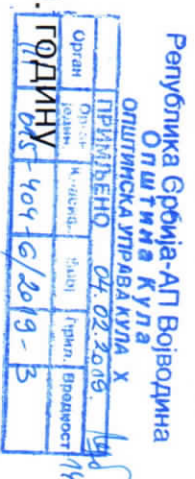 Република Србија-АП Војводина
Општина Кула
ОПШТИНСКА УПРАВА КУЛА X
ПРИМЉЕНО 04.02.2019.
Орган Прил. Вредност
015-404-6/2019-3
. ГОДИНУ